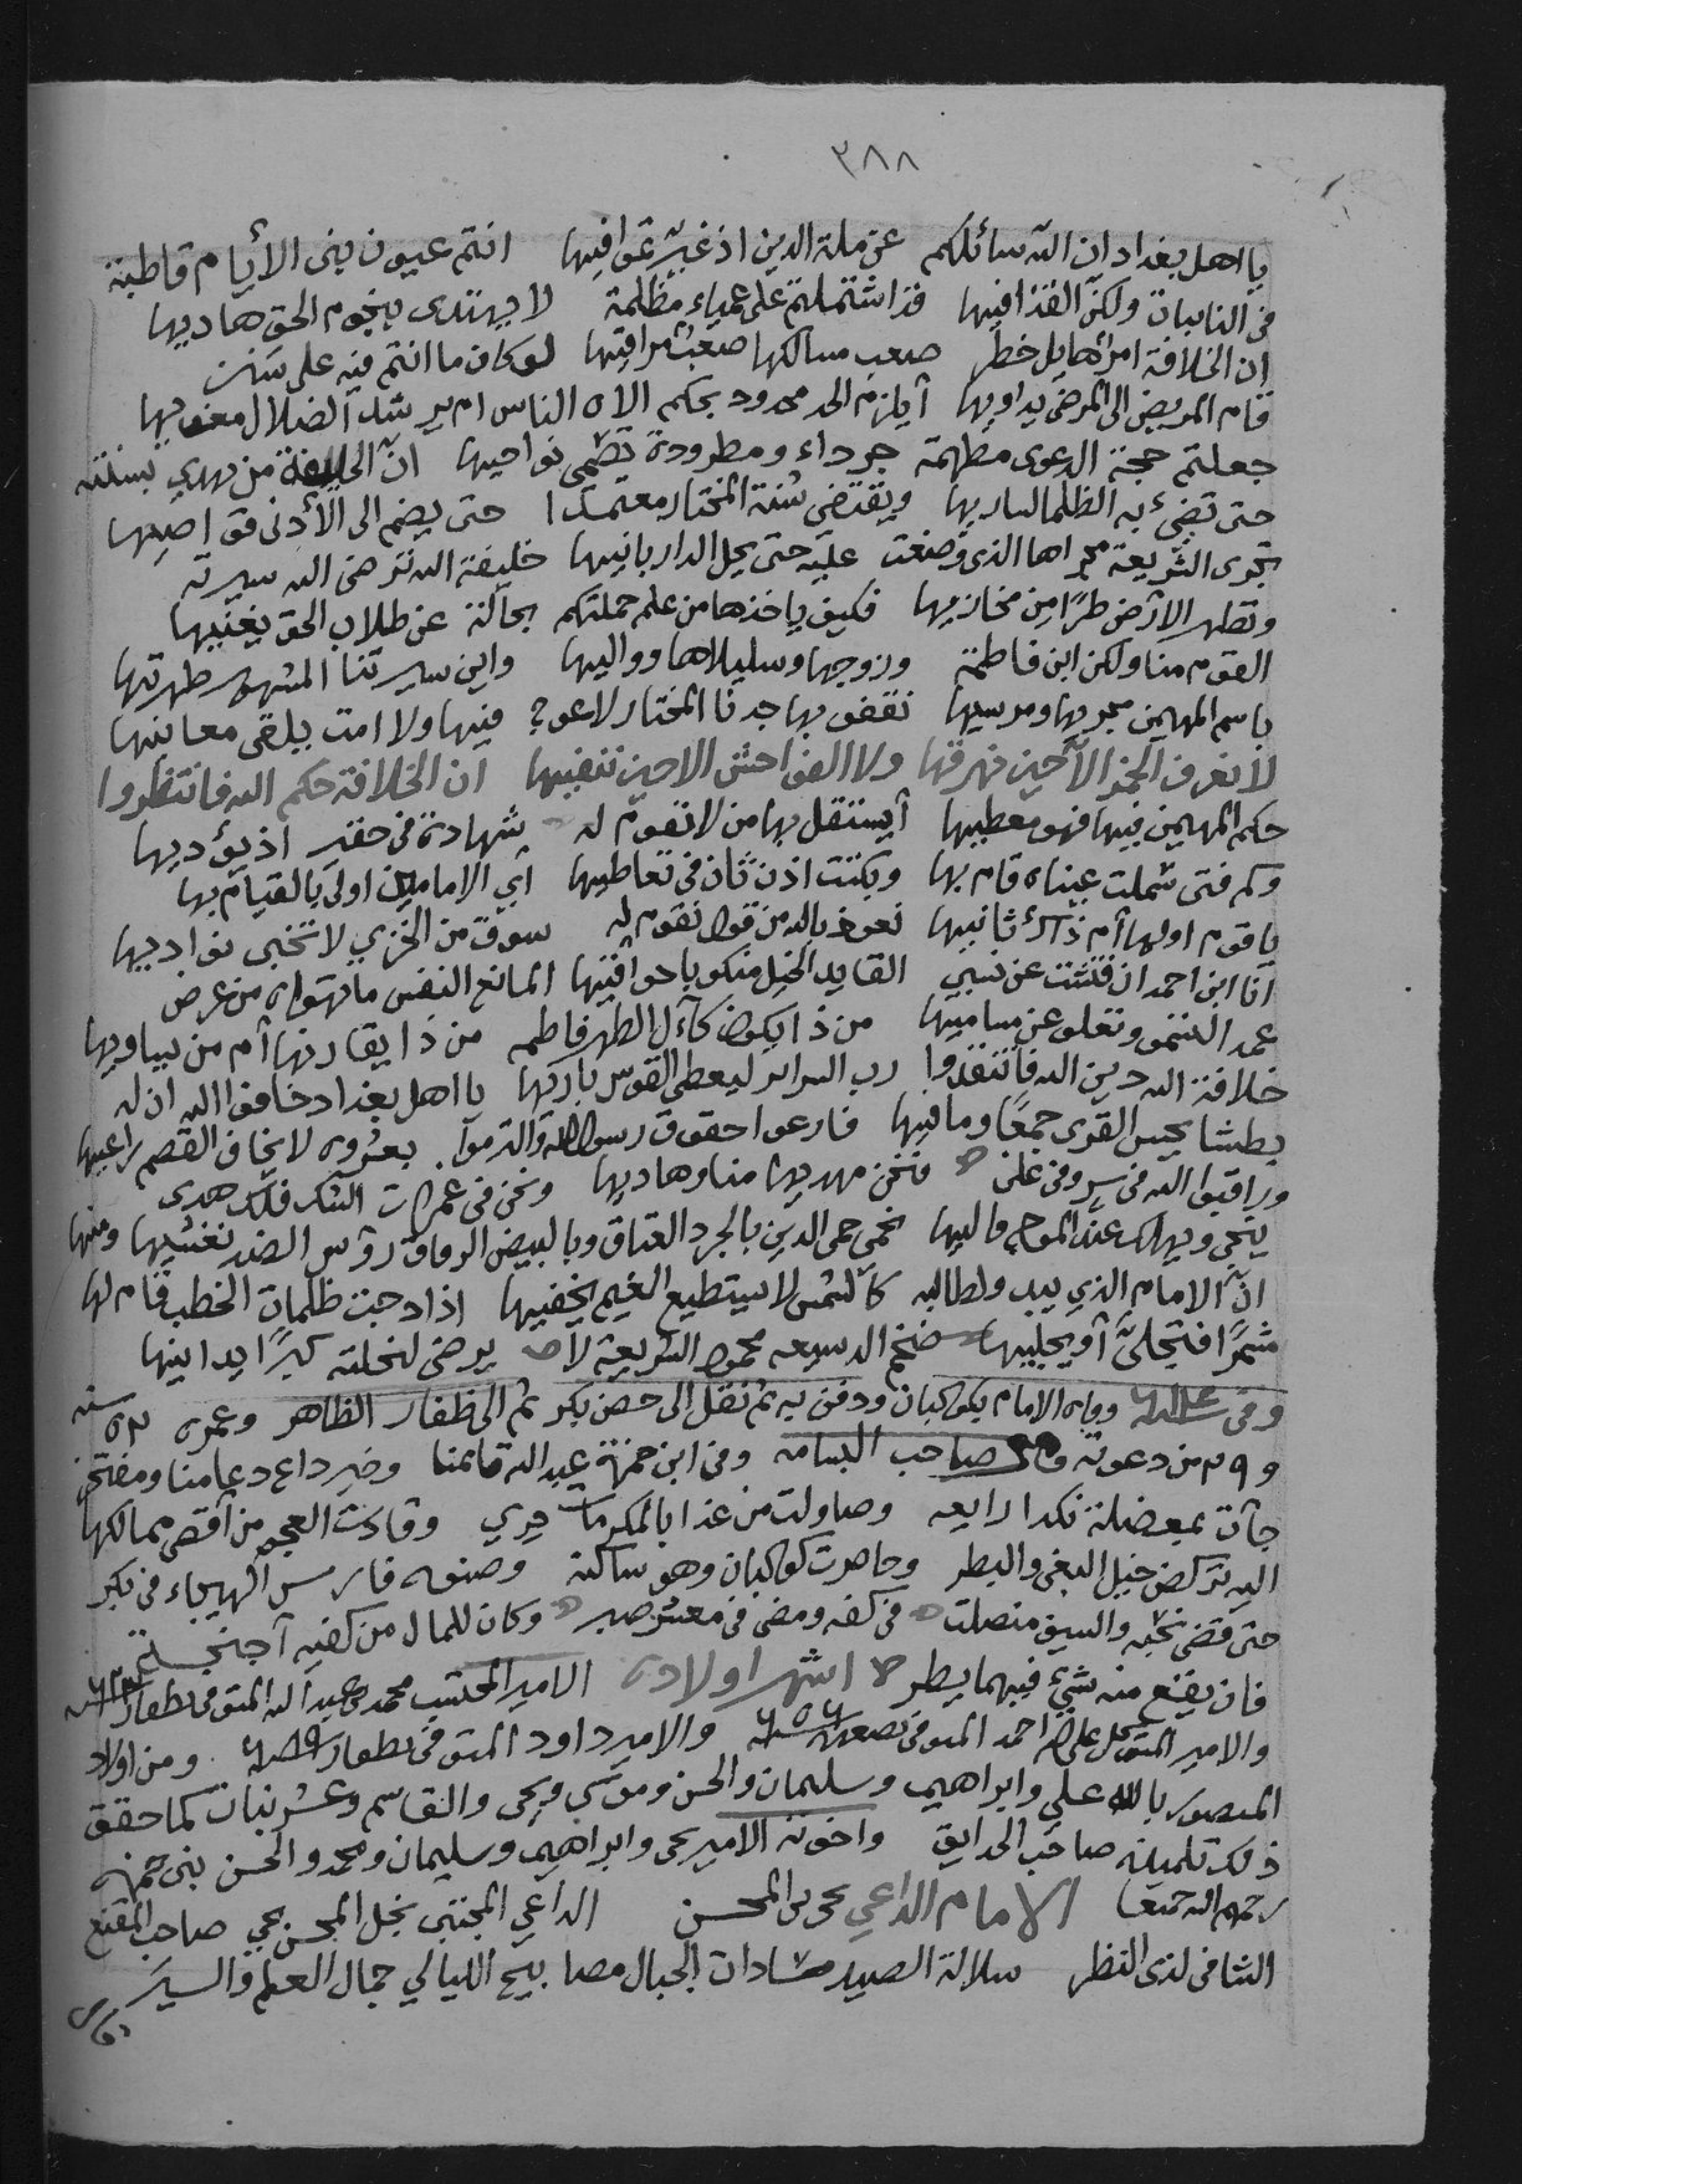 ٣٨٨
يا اهل بغداد ان الله سائلكم عن ملة الدين اذ غيرتموا فيها انتم عيون بني الأيام قاطبة
في النايبات ولكن القذا فيها قد اشتملتم على عمياء مظلمة لا يهتدى بنجوم الحق هاديها
ان الخلافة امر هايل خطر صعب مسالكها صعب مراقيها لو كان ما انتم فيه على سنن
قام المريض الى المرضى يداويها أيلزم الحد محدود بحكم الاه الناس ام يرشد الضلال مغويها
جعلتم حجة الدعوى مطهمة جرداء ومطرودة تضمى نواحيها ان الخليفة من يهدي بسنته
حتى تضيء به الظلما لساريها ويقتضي سنة المختار معتمدا حتى يضم الى الأدنى قواصيها
تجرى الشريعة مجراها الذى وضعت عليه حتى يحل الدار بانيها خليفة الله ترضى الله سيرته
وتطهر الارض طرًا من مخازيها فكيف ياخذها من علم حملتكم بحالة عن طلاب الحق يغنيها
القوم منا ولكن ابن فاطمة وزوجها وسليلاها وواليها واين سيرتنا المشهور طهرتها
باسم المهيمن مجريها ومرسيها نقفو بها جدنا المختار لا عوج فيها ولا امت يلقى معانيها
لا نعرف الخمر الا حين نهرقها ولا الفواحش الا حين ننفيها ان الخلافة حكم الله فانتظروا
حكم المهيمن فيها فهو معطيها أيستقل بها من لا تقوم له شهادة في حقير اذ يؤديها
وكم فتى شملت عيناه قام بها وبكتت اذن ثان في تعاطيها اي الامامين اولى بالقيام بها
يا قوم اولها أم ذاك ثانيها نعوذ بالله من قول نقوم له سوق من الخزي لا تخبى نواديها
انا ابن احمد ان فتشت عن نسبي القايد الخيل منكوبا حوافيها المانع النفس ما تهواه من عرض
عمد السمو وتعلو عن مساميها من ذا يكون كآل الطهر فاطمه من ذا يقارنها أم من يساويها
خلافة الله دين الله فانتقدوا رب السراير ليعطى القوس باريها يا اهل بغداد خافوا الله ان له
بطشا يحيس القرى جمعًا وما فيها فارعوا حقوق رسول الله والتزموا بعروه لا يخاف القصم راعيها
وراقبوا الله في سر وفي علن فنحن مهديها منا وهاديها ونحن في غمرات الشك فلك هدى
ينجى ويهلك عند الموج قاليها نحمي حمى الدين بالجرد العتاق وبالبيض الرقاق رؤس الضد نغشيها ومنها
انّ الامام الذي يبدو لطالبه كالشمس لا يستطيع الغيم يخفيها اذا دجت ظلمات الخطب قام لها
مشمرًا فتجلىّ أو يجليها ضخم الدسيعه محمود الشريعة لا يرضى لنحلته كبرًا يدانيها
وفي وفاه الامام بكوكبان ودفن به ثم نقل الى حصن بكر ثم الى ظفار الظاهر وعمره ٥٣ سنه
و١٩ من دعوته صاحب البسامه وفي ابن حمزة عبد الله قائمنا وخير داع دعا منا ومفتخر
جآت بمعضلة نكدا رايعه وصاولت من غدا بالمكرمات حري وقادت العجم من أقصى ممالكها
اليه تركض خيل البغي والبطر وحاصرت كوكبان وهو ساكنه وصنوه فارس الهيجاء في بكر
حتى قضى نحبه والسيف منصلت في كفه ومضى في معشر صبر وكان للمال من كفيه أجنحة
فان يقع منه شيء فيهما يطر اشهر اولاده الامير المحتسب محمد بن عبد الله المتوفى بظفار
والامير المتوكل على الله احمد المتوفى بصعده ٦٥٦ والامير داود المتوفى بظفار ومن اولاد
المنصور بالله علي وابراهيم وسليمان والحسن وموسى ويحى والقاسم وعشر بنات كما حقق
ذلك تلميذه صاحب الحدايق واخوته الامير يحى وابراهيم وسليمان ومحمد والحسن بنى حمزه
رحمهم الله جميعا الامام الداعي يحيى بن المحسن الداعي المجتبى نجل المحسن يحيى صاحب المقنع
الشافى لذى النظر سلالة الصيد سادات الجبال مصابيح الليالي جمال العلم والسير